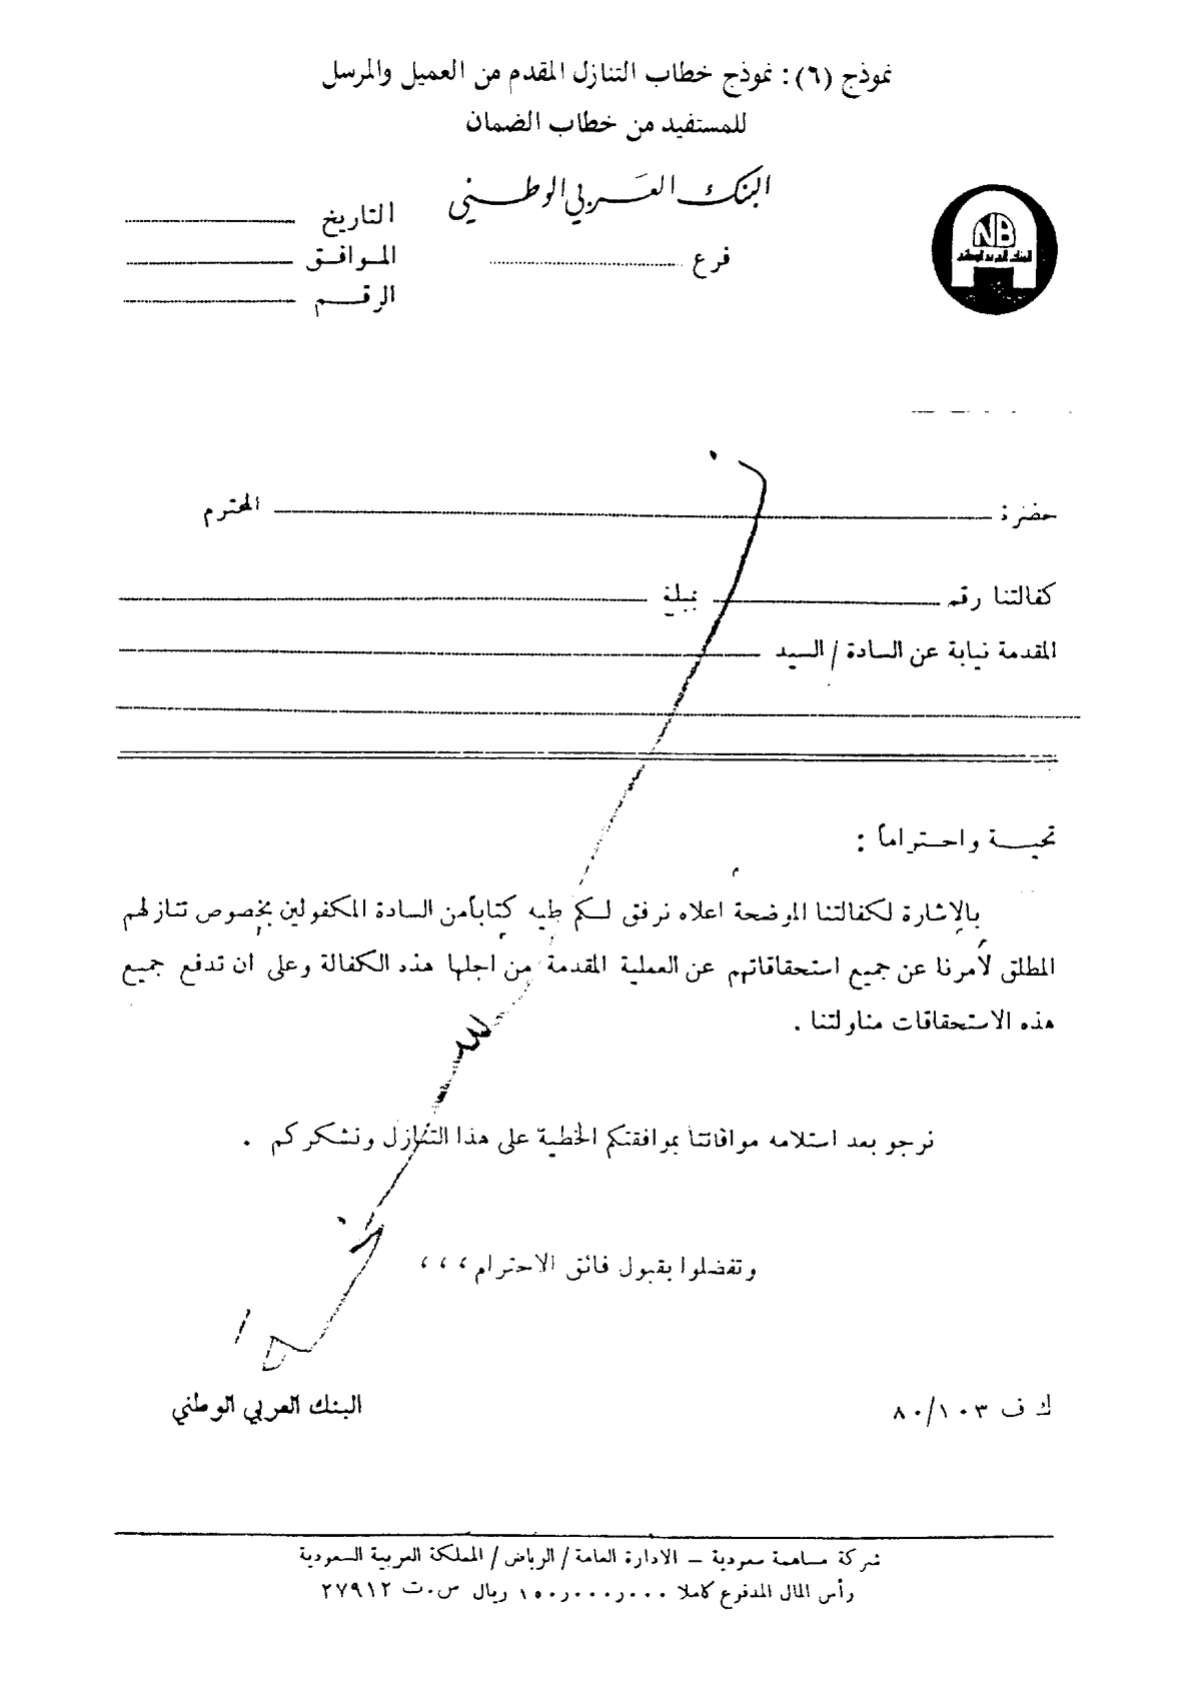 نموذج (٦): نموذج خطاب التنازل المقدم من العميل والمرسل
للمستفيد من خطاب الضمان
البنك العربي الوطني
التاريخ
فرع
الموافق
الرقم
NB
حضرة: المحترم
كفالتنا رقم بمبلغ
المقدمة نيابة عن السادة / السيد
تحية واحتراماً :
بالإشارة لكفالتنا الموضحة اعلاه نرفق لكم طيه كتاباً من السادة المكفولين بخصوص تنازلهم
المطلق لأمرنا عن جميع استحقاقاتهم عن العملية المقدمة من اجلها هذه الكفالة وعلى ان تدفع جميع
هذه الاستحقاقات مناولتنا .
نرجو بعد استلامه موافاتنا بموافقتكم الخطية على هذا التنازل ونشكركم .
وتفضلوا بقبول فائق الاحترام ،،،
البنك العربي الوطني
ك ف ٨٠/١٠٣
شركة مساهمة سعودية – الادارة العامة / الرياض / المملكة العربية السعودية
رأس المال المدفوع كاملا ١٥٠ر٠٠٠ر٠٠٠ ريال س.ت ٢٧٩١٢